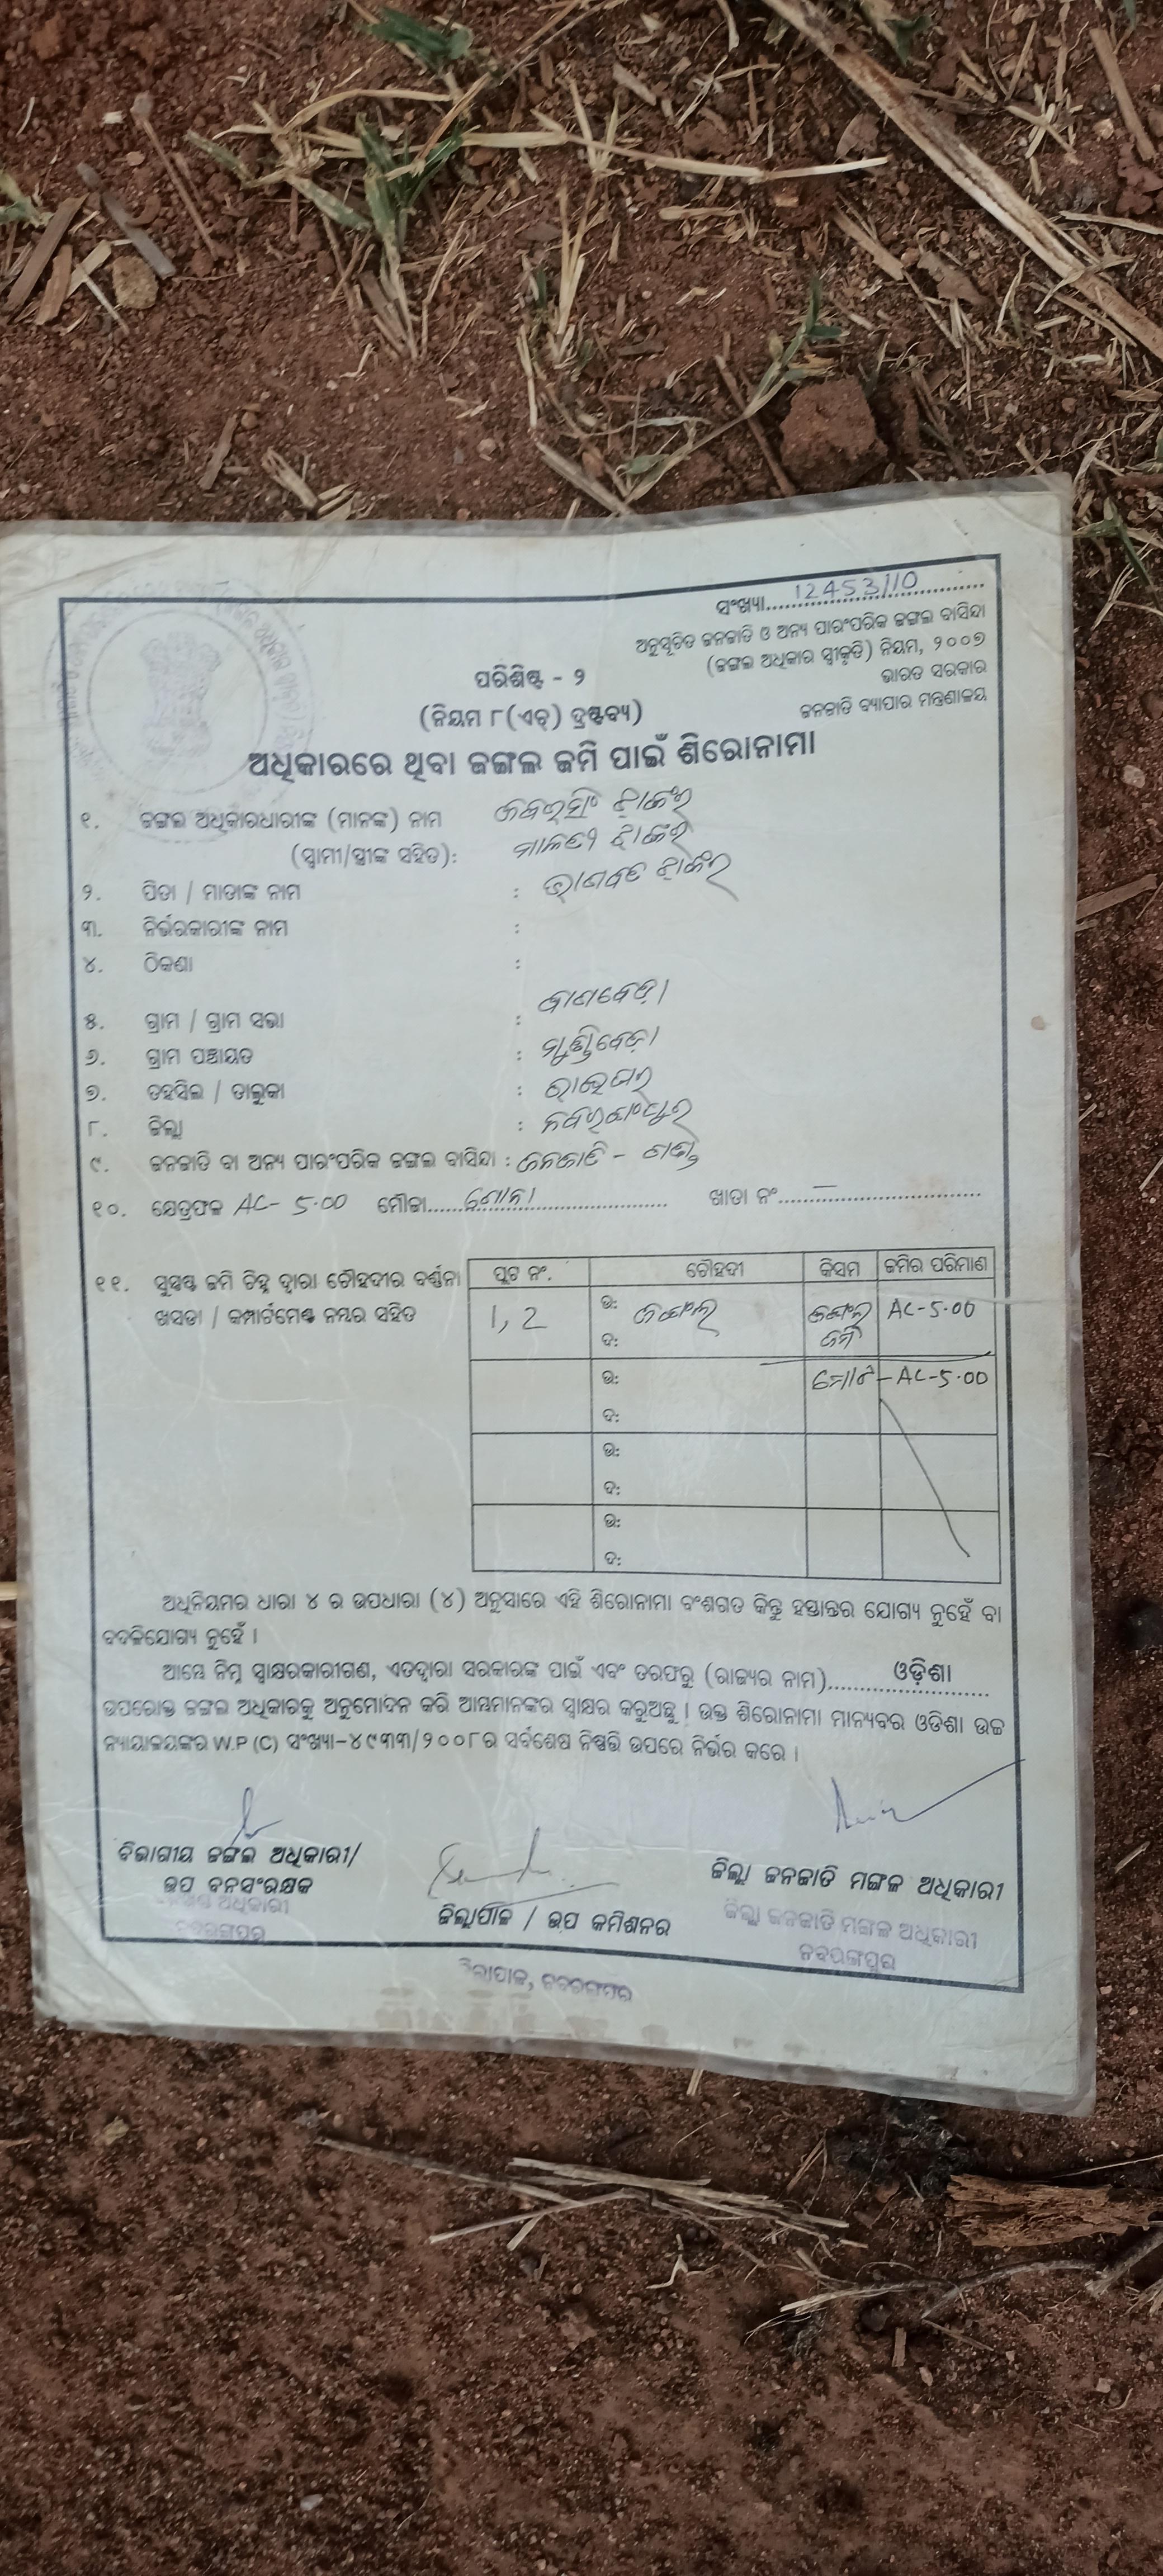 ସଂଖ୍ୟା........12453/10........
ଅନୁସୂଚିତ ଜନଜାତି ଓ ଅନ୍ୟ ପାରଂପରିକ ଜଙ୍ଗଲ ବାସିନ୍ଦା
(ଜଙ୍ଗଲ ଅଧିକାର ସ୍ୱୀକୃତି) ନିୟମ, ୨୦୦୭
ଭାରତ ସରକାର
ଜନଜାତି ବ୍ୟାପାର ମନ୍ତ୍ରଣାଳୟ
ପରିଶିଷ୍ଟ - ୨
(ନିୟମ ୮(ଏଚ୍) ଦ୍ରଷ୍ଟବ୍ୟ)
ଅଧିକାରରେ ଥିବା ଜଙ୍ଗଲ ଜମି ପାଇଁ ଶିରୋନାମା
୧. ଜଙ୍ଗଲ ଅଧିକାରଧାରୀଙ୍କ (ମାନଙ୍କ) ନାମ
(ସ୍ୱାମୀ/ସ୍ତ୍ରୀଙ୍କ ସହିତ):
୨. ପିତା / ମାତାଙ୍କ ନାମ :
୩. ନିର୍ଭରକାରୀଙ୍କ ନାମ :
୪. ଠିକଣା :
୫. ଗ୍ରାମ / ଗ୍ରାମ ସଭା :
୬. ଗ୍ରାମ ପଞ୍ଚାୟତ : ମୁଣ୍ଡିବେଡ଼ା
୭. ତହସିଲ / ତାଲୁକା : ରାଇଘର
୮. ଜିଲ୍ଲା : ନବରଙ୍ଗପୁର
୯. ଜନଜାତି ବା ଅନ୍ୟ ପାରଂପରିକ ଜଙ୍ଗଲ ବାସିନ୍ଦା : ଜନଜାତି - ଗଣ୍ଡ
୧୦. କ୍ଷେତ୍ରଫଳ AC- 5.00 ମୌଜା........ ଖାତା ନଂ........
୧୧. ସୁସ୍ପଷ୍ଟ ଜମି ଚିହ୍ନ ଦ୍ୱାରା ଚୌହଦୀର ବର୍ଣ୍ଣନା
ଖସଡା / କମ୍ପାର୍ଟମେଣ୍ଟ ନମ୍ବର ସହିତ
ପ୍ଲଟ ନଂ. ଚୌହଦୀ କିସମ ଜମିର ପରିମାଣ
1, 2 ଉ: ଜଙ୍ଗଲ ଜଙ୍ଗଲ AC-5.00
ଦ: ଜମି
ଉ: ମୋଟ - AC-5.00
ଦ:
ଉ:
ଦ:
ଉ:
ଦ:
ଅଧିନିୟମର ଧାରା ୪ ର ଉପଧାରା (୪) ଅନୁସାରେ ଏହି ଶିରୋନାମା ବଂଶଗତ କିନ୍ତୁ ହସ୍ତାନ୍ତର ଯୋଗ୍ୟ ନୁହେଁ ବା
ବଦଳିଯୋଗ୍ୟ ନୁହେଁ ।
ଆମ୍ଭେ ନିମ୍ନ ସ୍ୱାକ୍ଷରକାରୀଗଣ, ଏତଦ୍ୱାରା ସରକାରଙ୍କ ପାଇଁ ଏବଂ ତରଫରୁ (ରାଜ୍ୟର ନାମ)........ଓଡ଼ିଶା........
ଉପରୋକ୍ତ ଜଙ୍ଗଲ ଅଧିକାରକୁ ଅନୁମୋଦନ କରି ଆମ୍ଭମାନଙ୍କର ସ୍ୱାକ୍ଷର କରୁଅଛୁ । ଉକ୍ତ ଶିରୋନାମା ମାନ୍ୟବର ଓଡିଶା ଉଚ୍ଚ
ନ୍ୟାୟାଳୟଙ୍କର W.P (C) ସଂଖ୍ୟା-୪୯୩୩/୨୦୦୮ର ସର୍ବଶେଷ ନିଷ୍ପତ୍ତି ଉପରେ ନିର୍ଭର କରେ ।
ବିଭାଗୀୟ ଜଙ୍ଗଲ ଅଧିକାରୀ/
ଉପ ବନସଂରକ୍ଷକ
ଜିଲ୍ଲାପାଳ / ଉପ କମିଶନର
ଜିଲ୍ଲା ଜନଜାତି ମଙ୍ଗଳ ଅଧିକାରୀ
ଜିଲ୍ଲା ଜନଜାତି ମଙ୍ଗଳ ଅଧିକାରୀ
ନବରଙ୍ଗପୁର
ଜିଲ୍ଲାପାଳ, ନବରଙ୍ଗପୁର